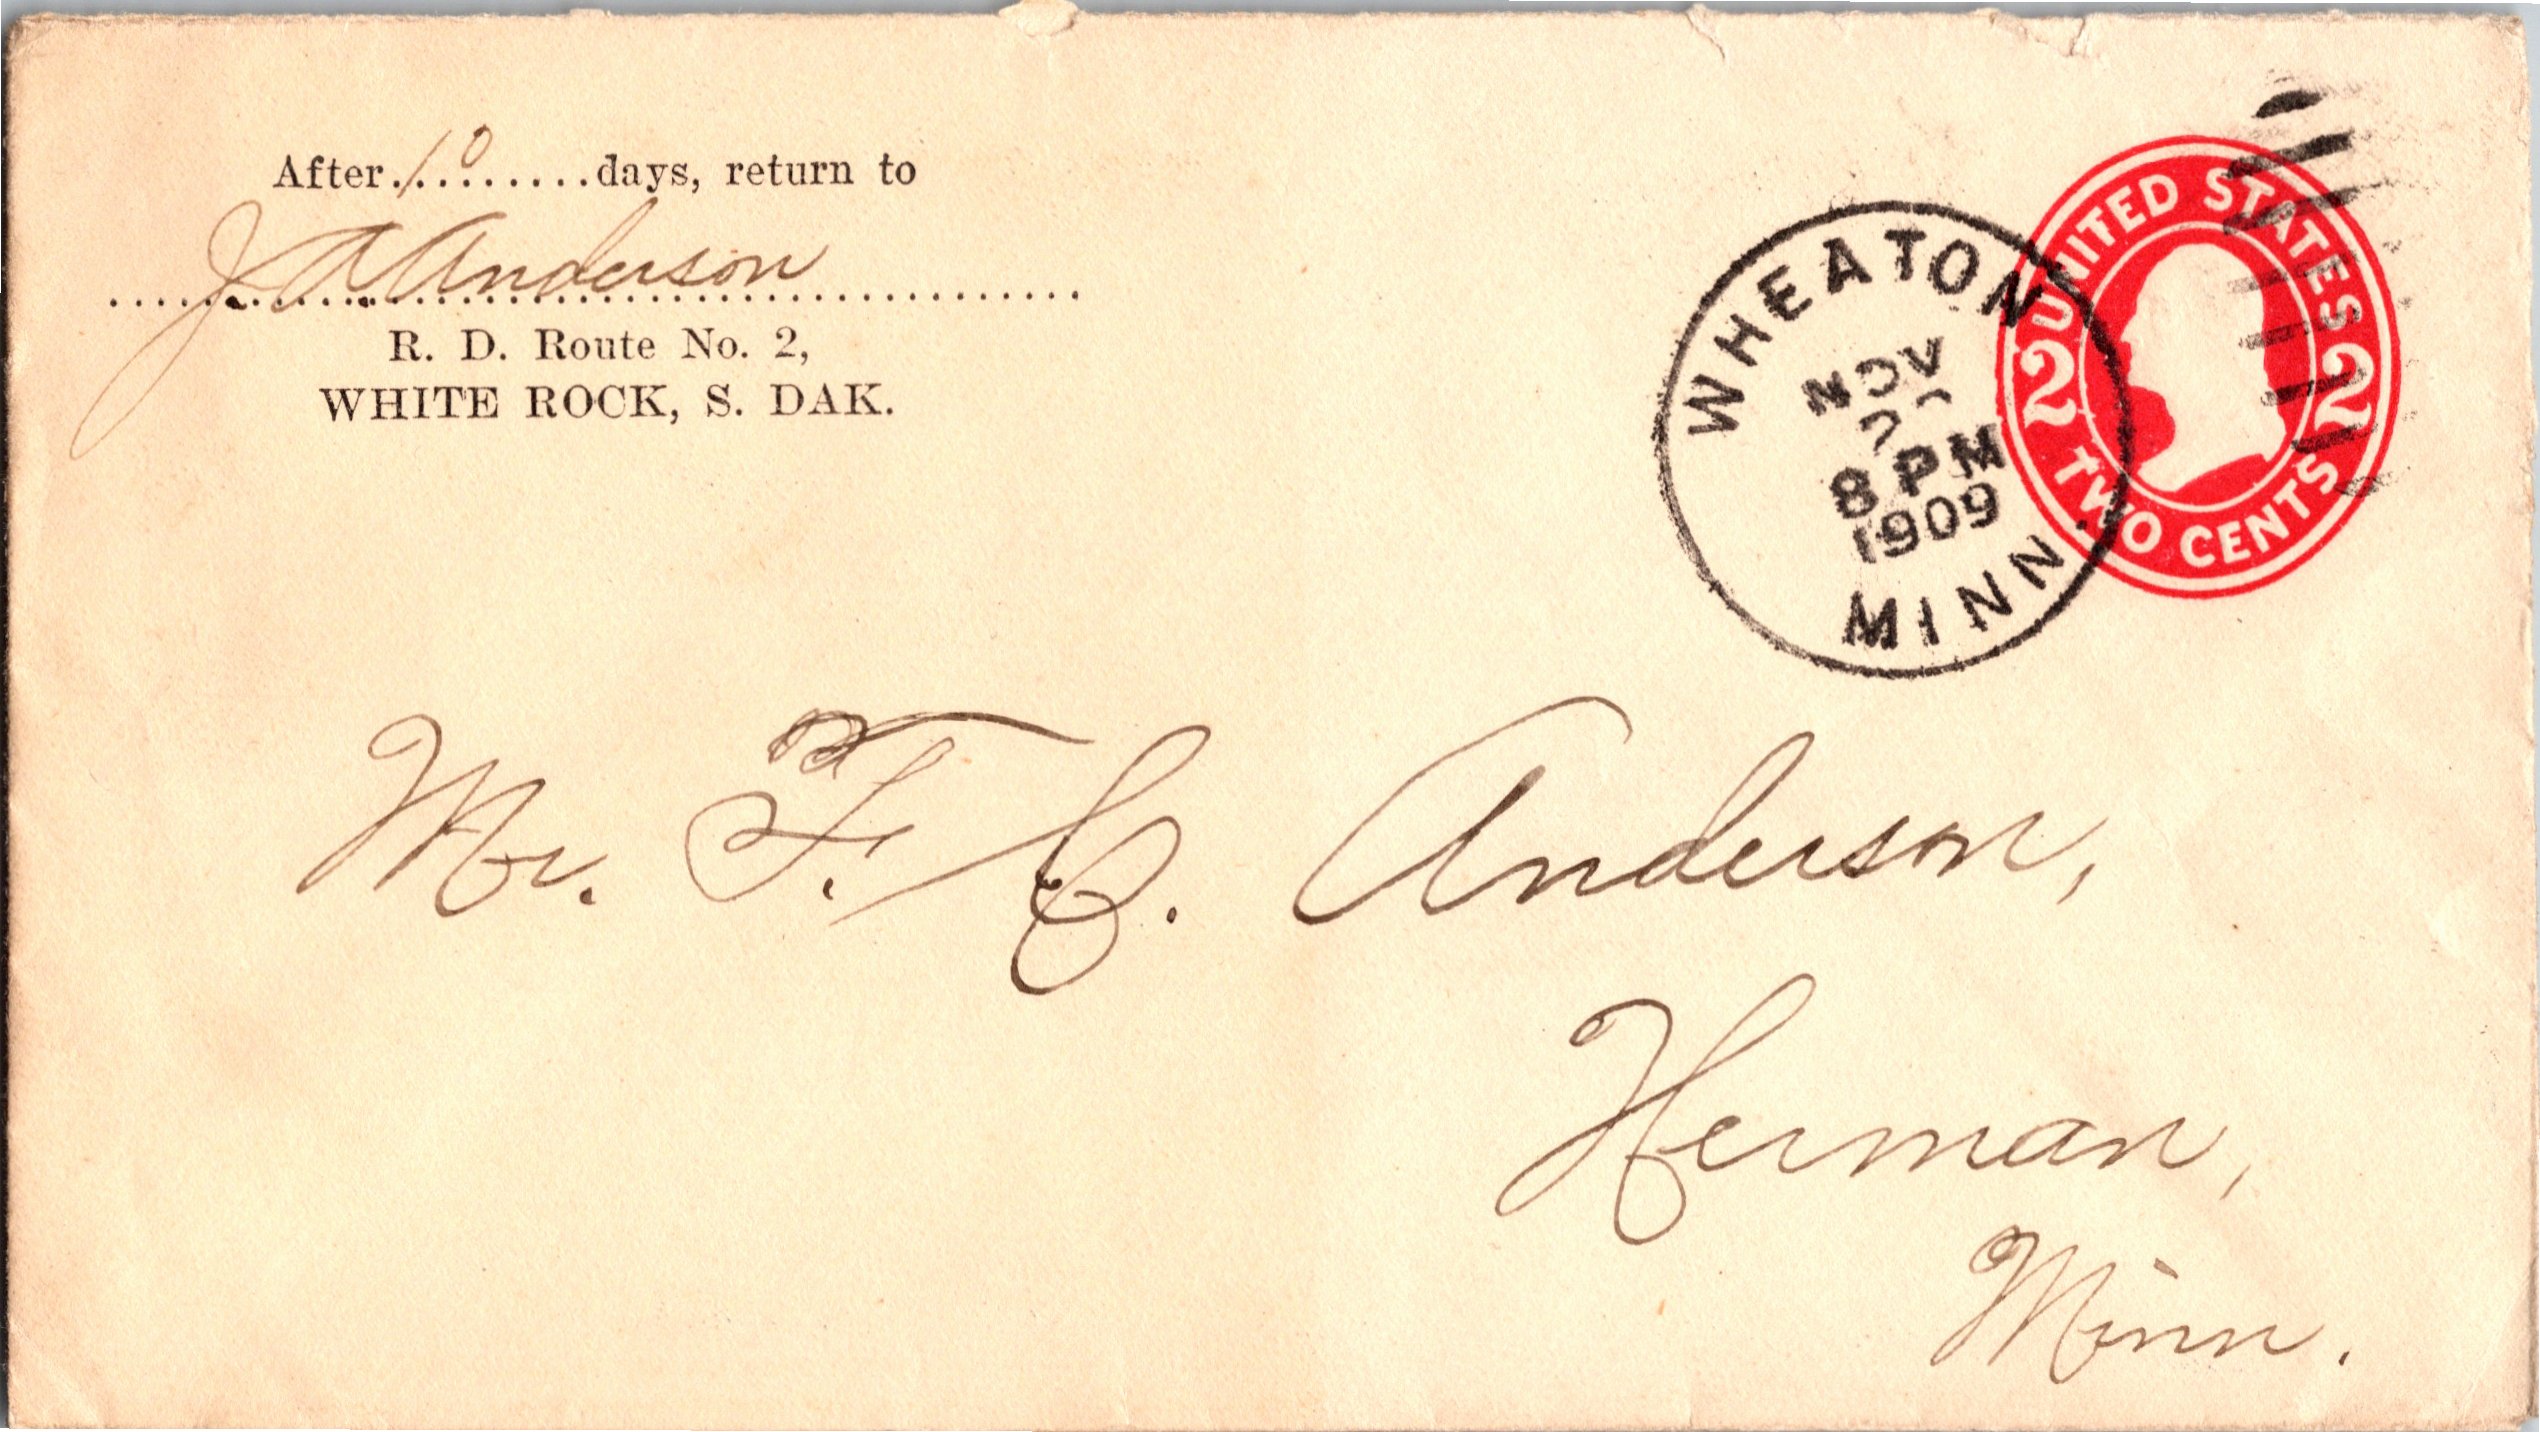 After 10 days, return to
J A Anderson
R. D. Route No. 2,
WHITE ROCK, S. DAK.
WHEATON
NOV
8 PM
1909
MINN.
UNITED STATES
2 2
TWO CENTS
Mr. F. C. Anderson,
Herman,
Minn.